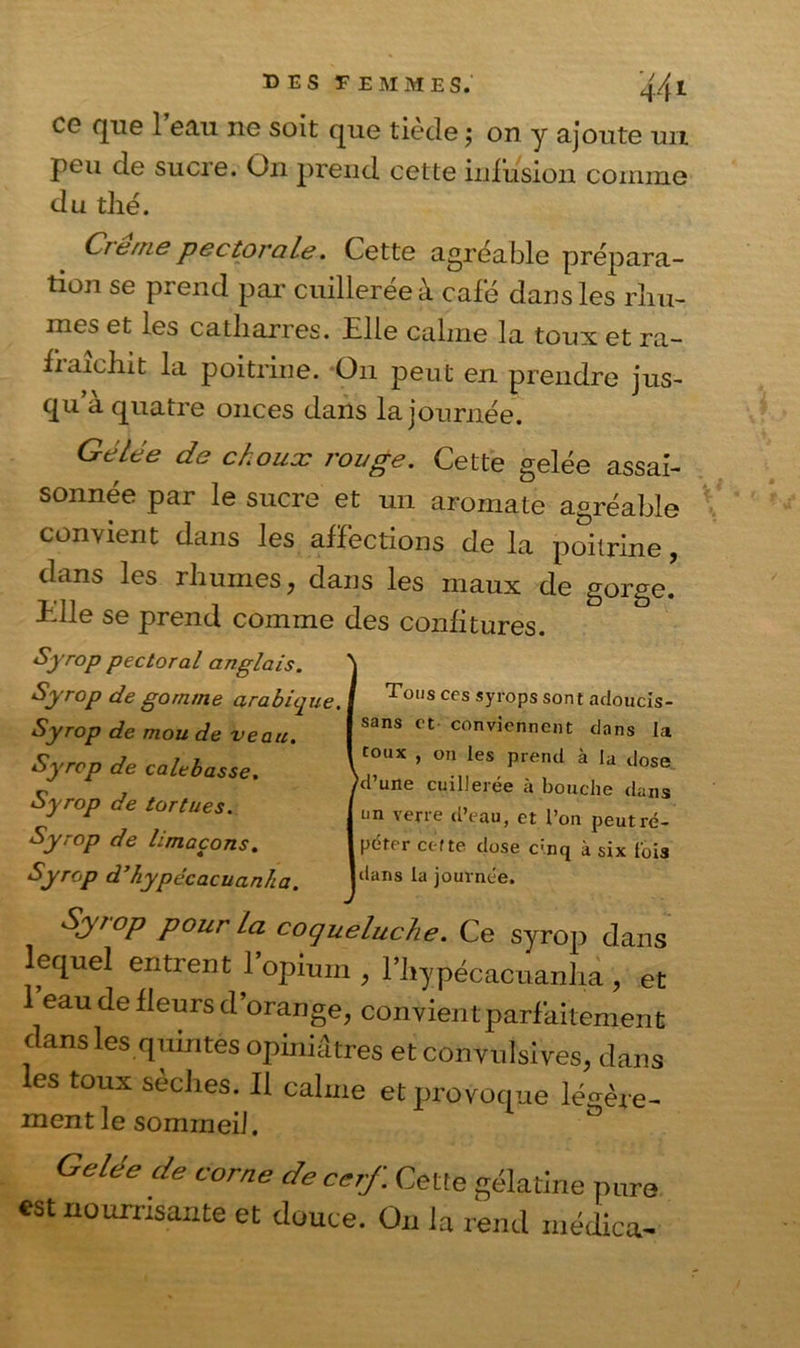 DES FEMMES. 441
ce que l'eau ne soit que tiède ; on y ajoute un
peu de sucre. On prend cette infusion comme
du thé.
Crême pectorale. Cette agréable prépara-
tion se prend par cuillerée à café dans les rhu-
mes et les catharres. Elle calme la toux et ra-
fraîchit la poitrine. On peut en prendre jus-
qu'à quatre onces dans la journée.
Gélée de choux rouge. Cette gelée assai-
sonnée par le sucre et un aromate agréable
convient dans les affections de la poitrine,
dans les rhumes, dans les maux de gorge.
Elle se prend comme des confitures.
Syrop pectoral anglais.
Syrop de gomme arabique.
Syrop de mou de veau.
Syrop de calebasse.
Syrop de tortues.
Syrop de limaçons.
Syrop d'hypécacuanha.
Tous ces syrops sont adoucis-
sans et conviennent dans la
toux , on les prend à la dose
d'une cuillerée à bouche dans
un verre d'eau, et l'on peut ré-
péter cette dose cinq à six fois
dans la journée.
Syrop pour la coqueluche. Ce syrop dans
lequel entrent l'opium , l'hypécacuanha , et
l'eau de fleurs d'orange, convient parfaitement
dans les quintes opiniâtres et convulsives, dans
les toux sèches. Il calme et provoque légère-
ment le sommeil.
Gelée de corne de cerf. Cette gélatine pure
est nourrisante et douce. On la rend médica-